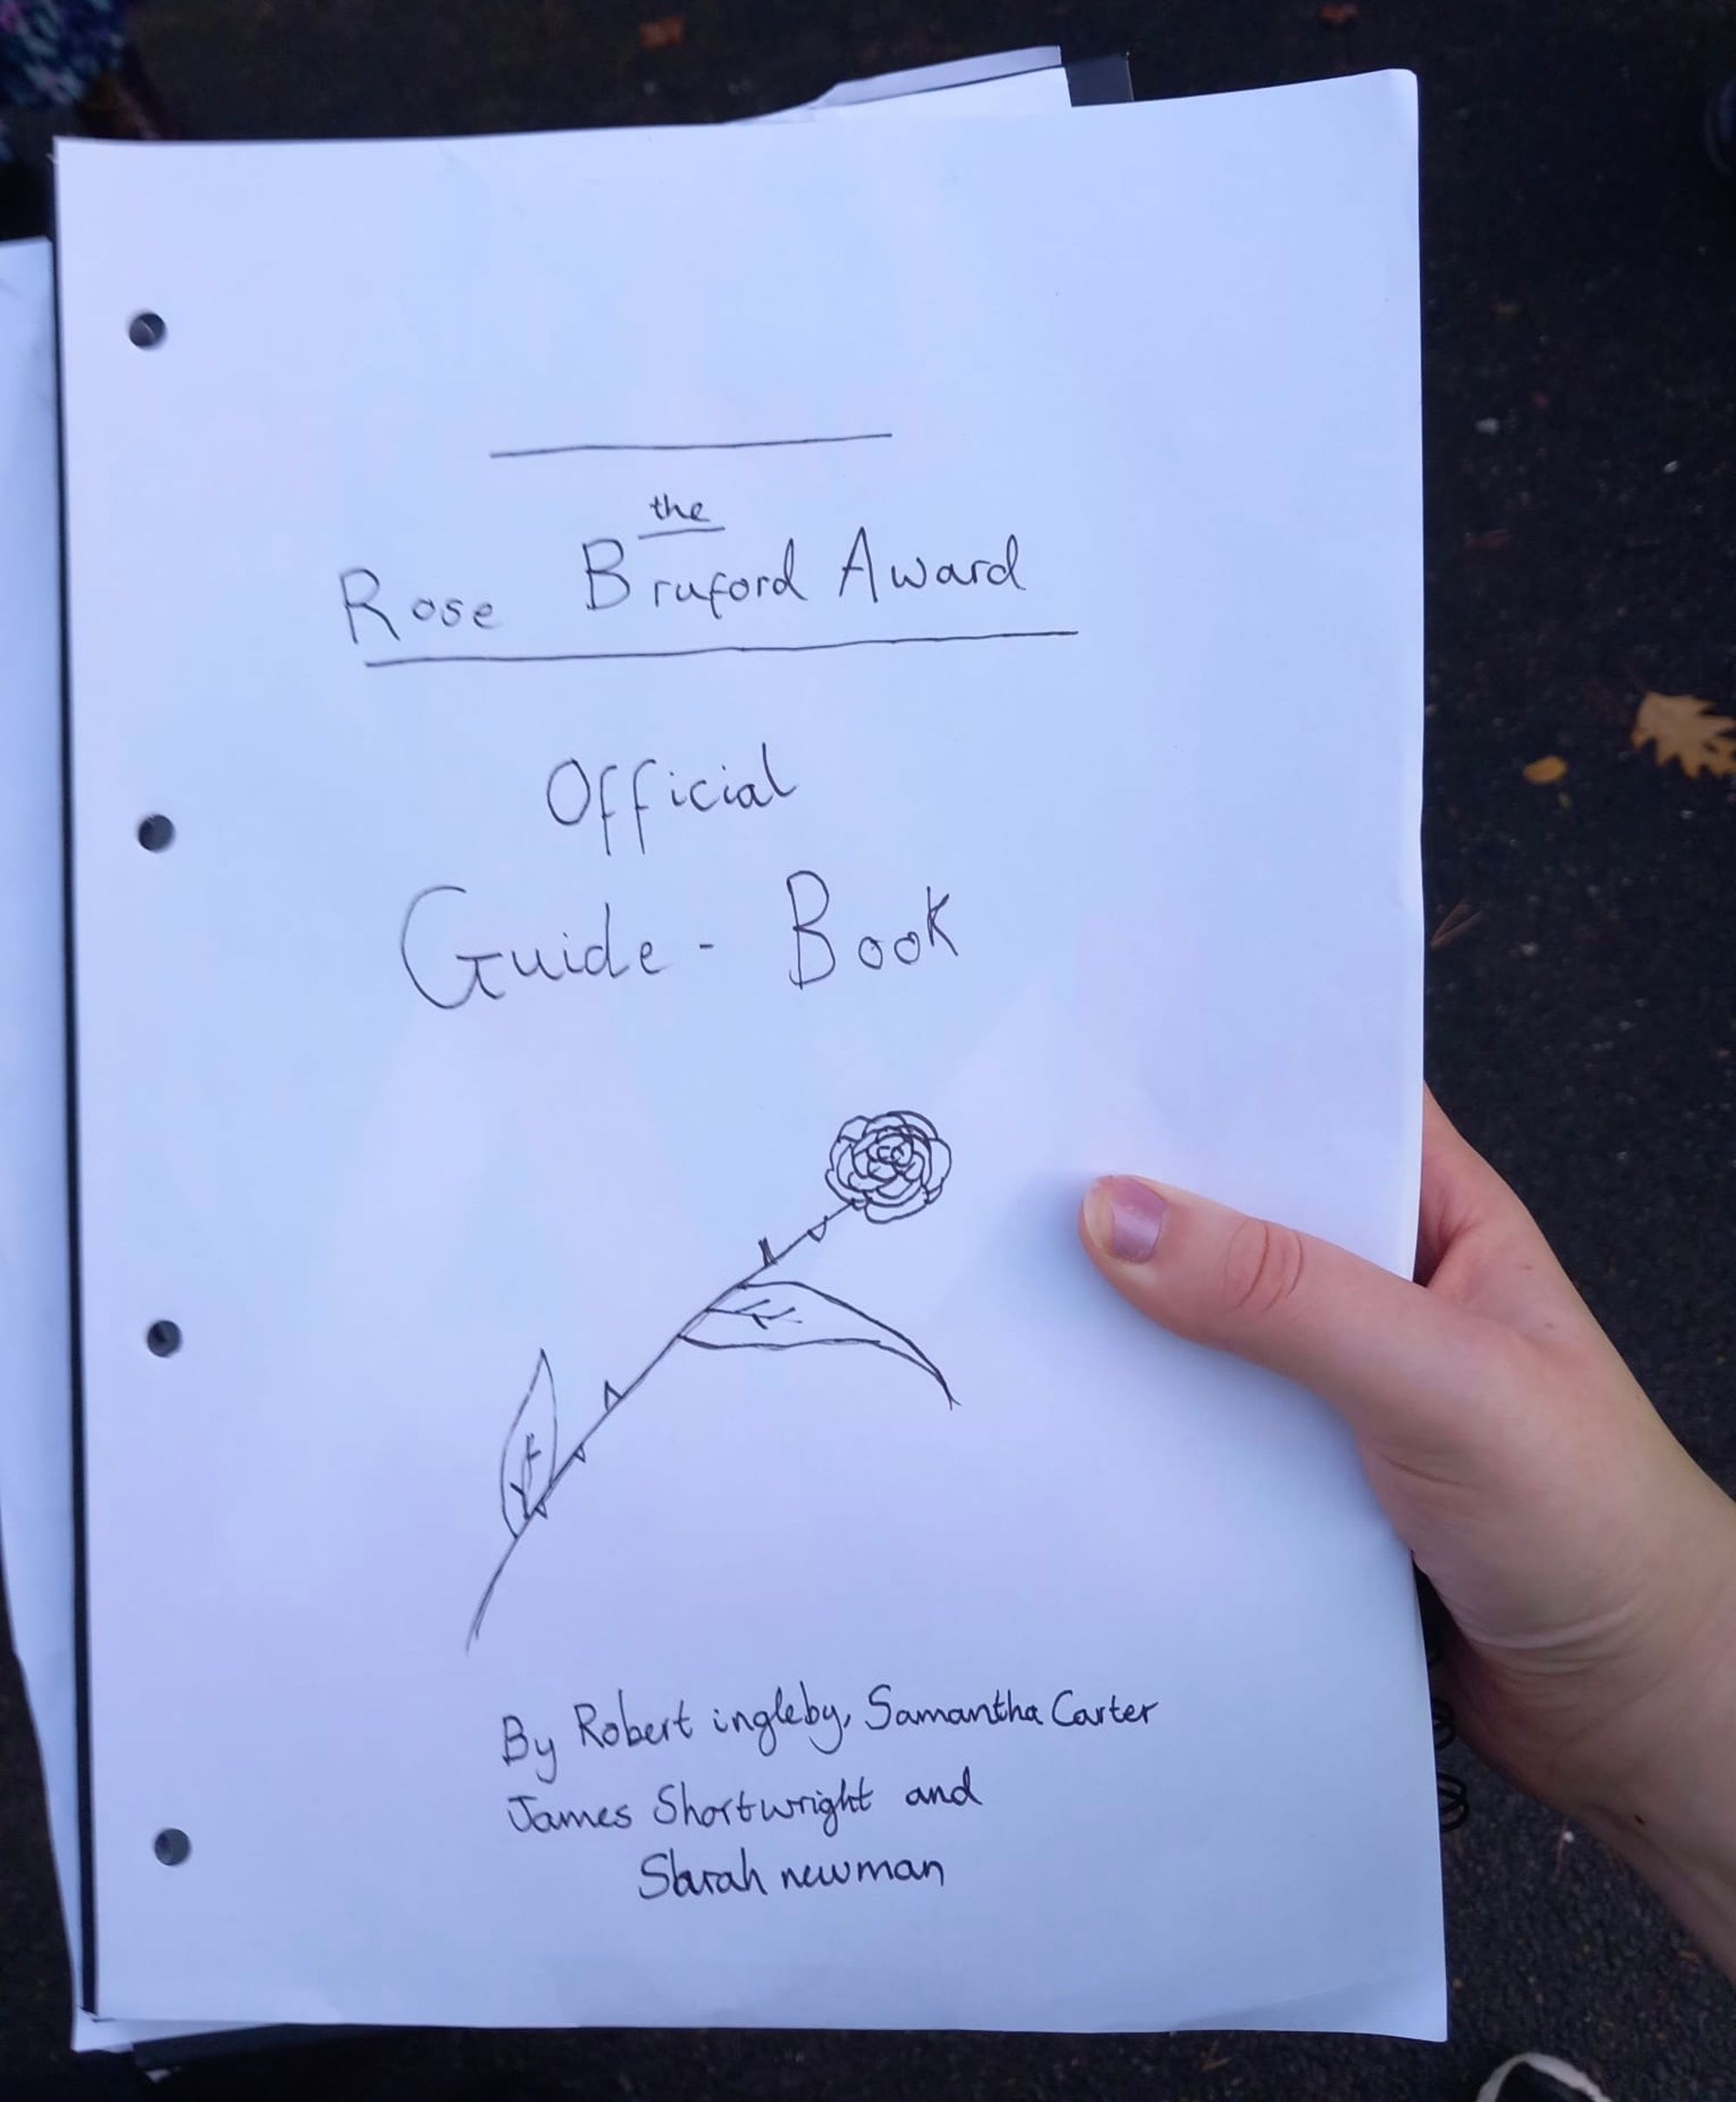 the
Rose Bruford Award
Official
Guide - Book
By Robert ingleby, Samantha Carter
James Shortwright and
Sarah newman